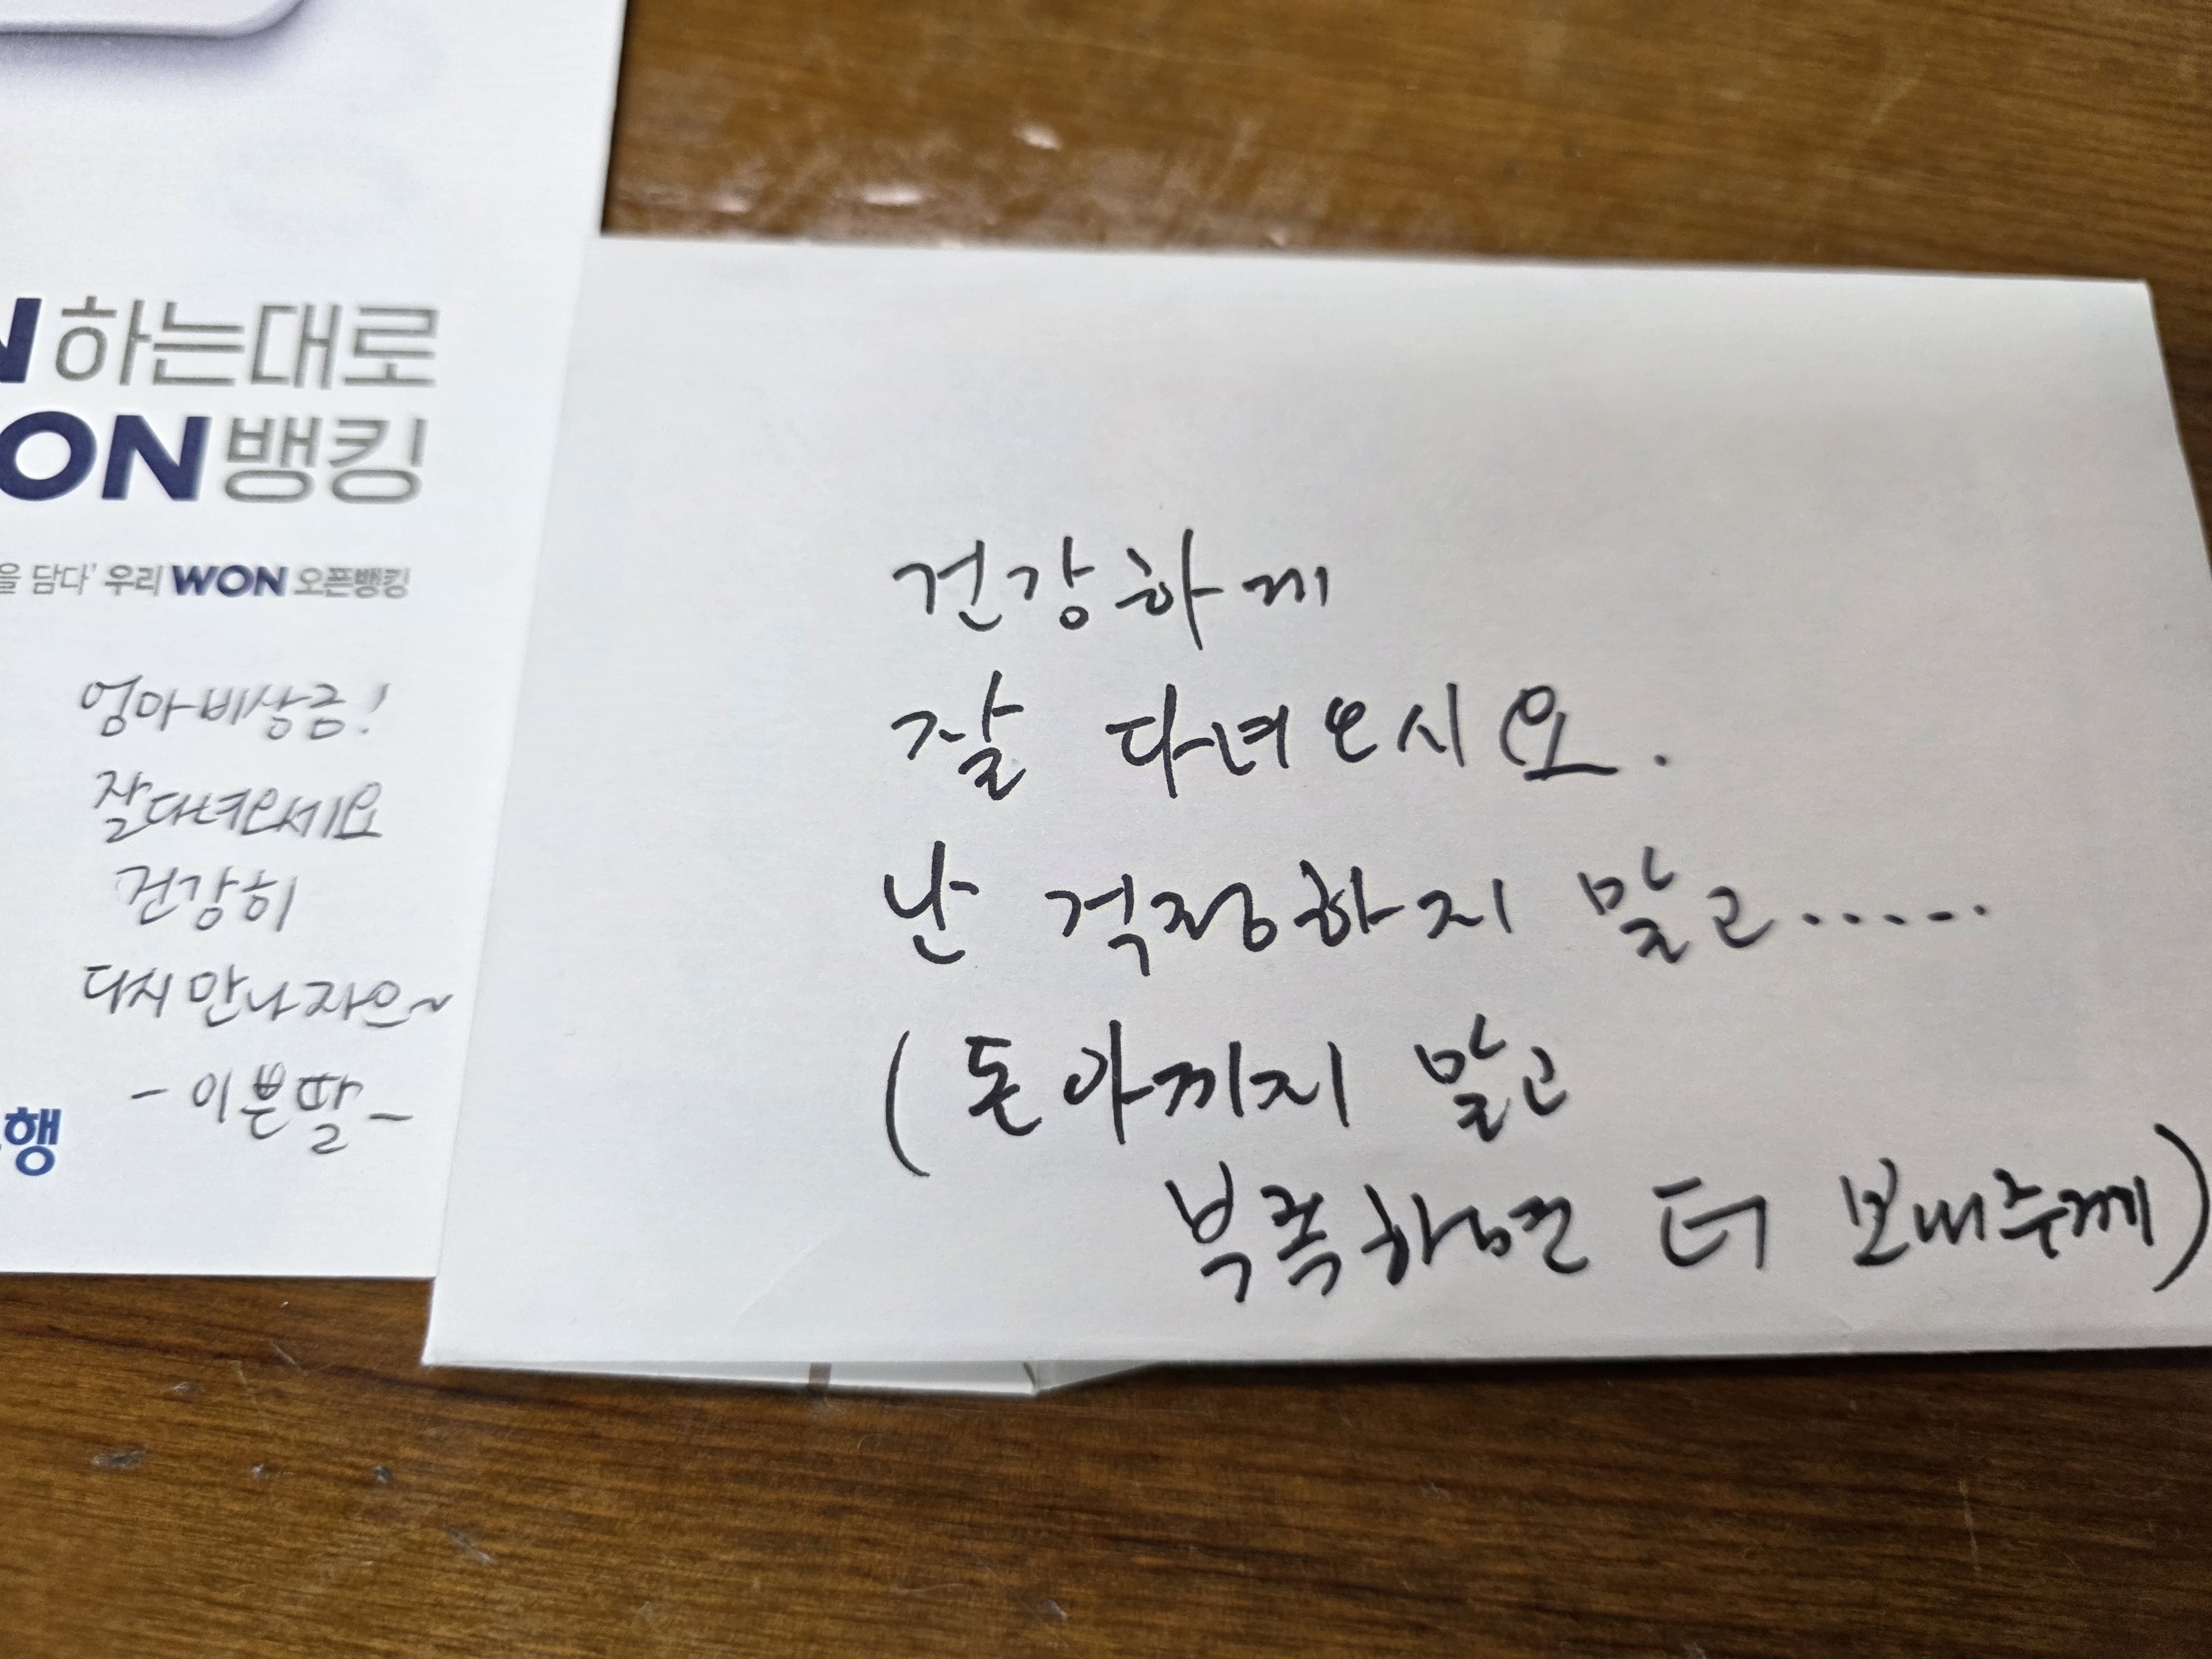 N 하는대로
ON 뱅킹
을 담다' 우리 WON 오픈뱅킹
엄마 비상금!
잘다녀오세요
건강히
다시 만나자으~
- 이쁜딸 -
행
건강하게
잘 다녀오시오.
난 걱정하지 말고......
(돈 아끼지 말고
부족하면 더 보내주께)